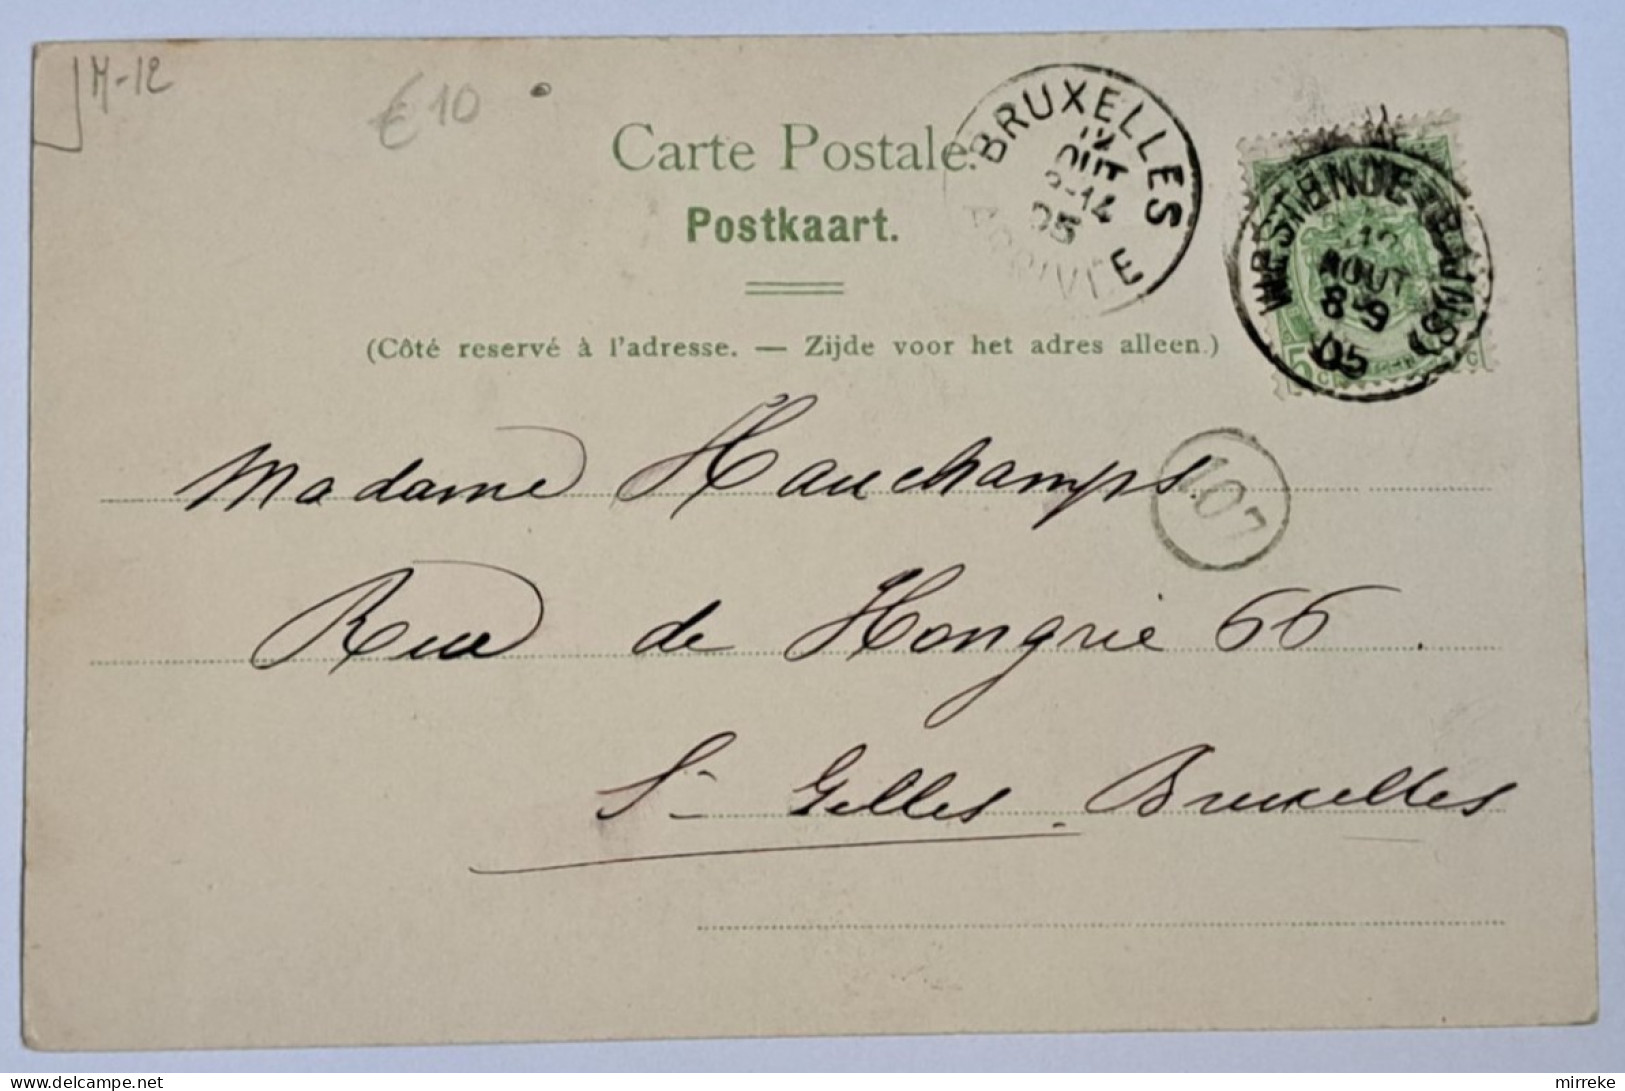 M-12
€10
Carte Postale.
Postkaart.
BRUXELLES
12
AOUT
05
ARRIVEE
WESTENDE (BAINS)
12
AOUT
8-9
05
5
(Côté reservé à l'adresse. — Zijde voor het adres alleen.)
Madame Hauchamps.
107
Rue de Hongrie 66.
St Gilles. Bruxelles
mirreke